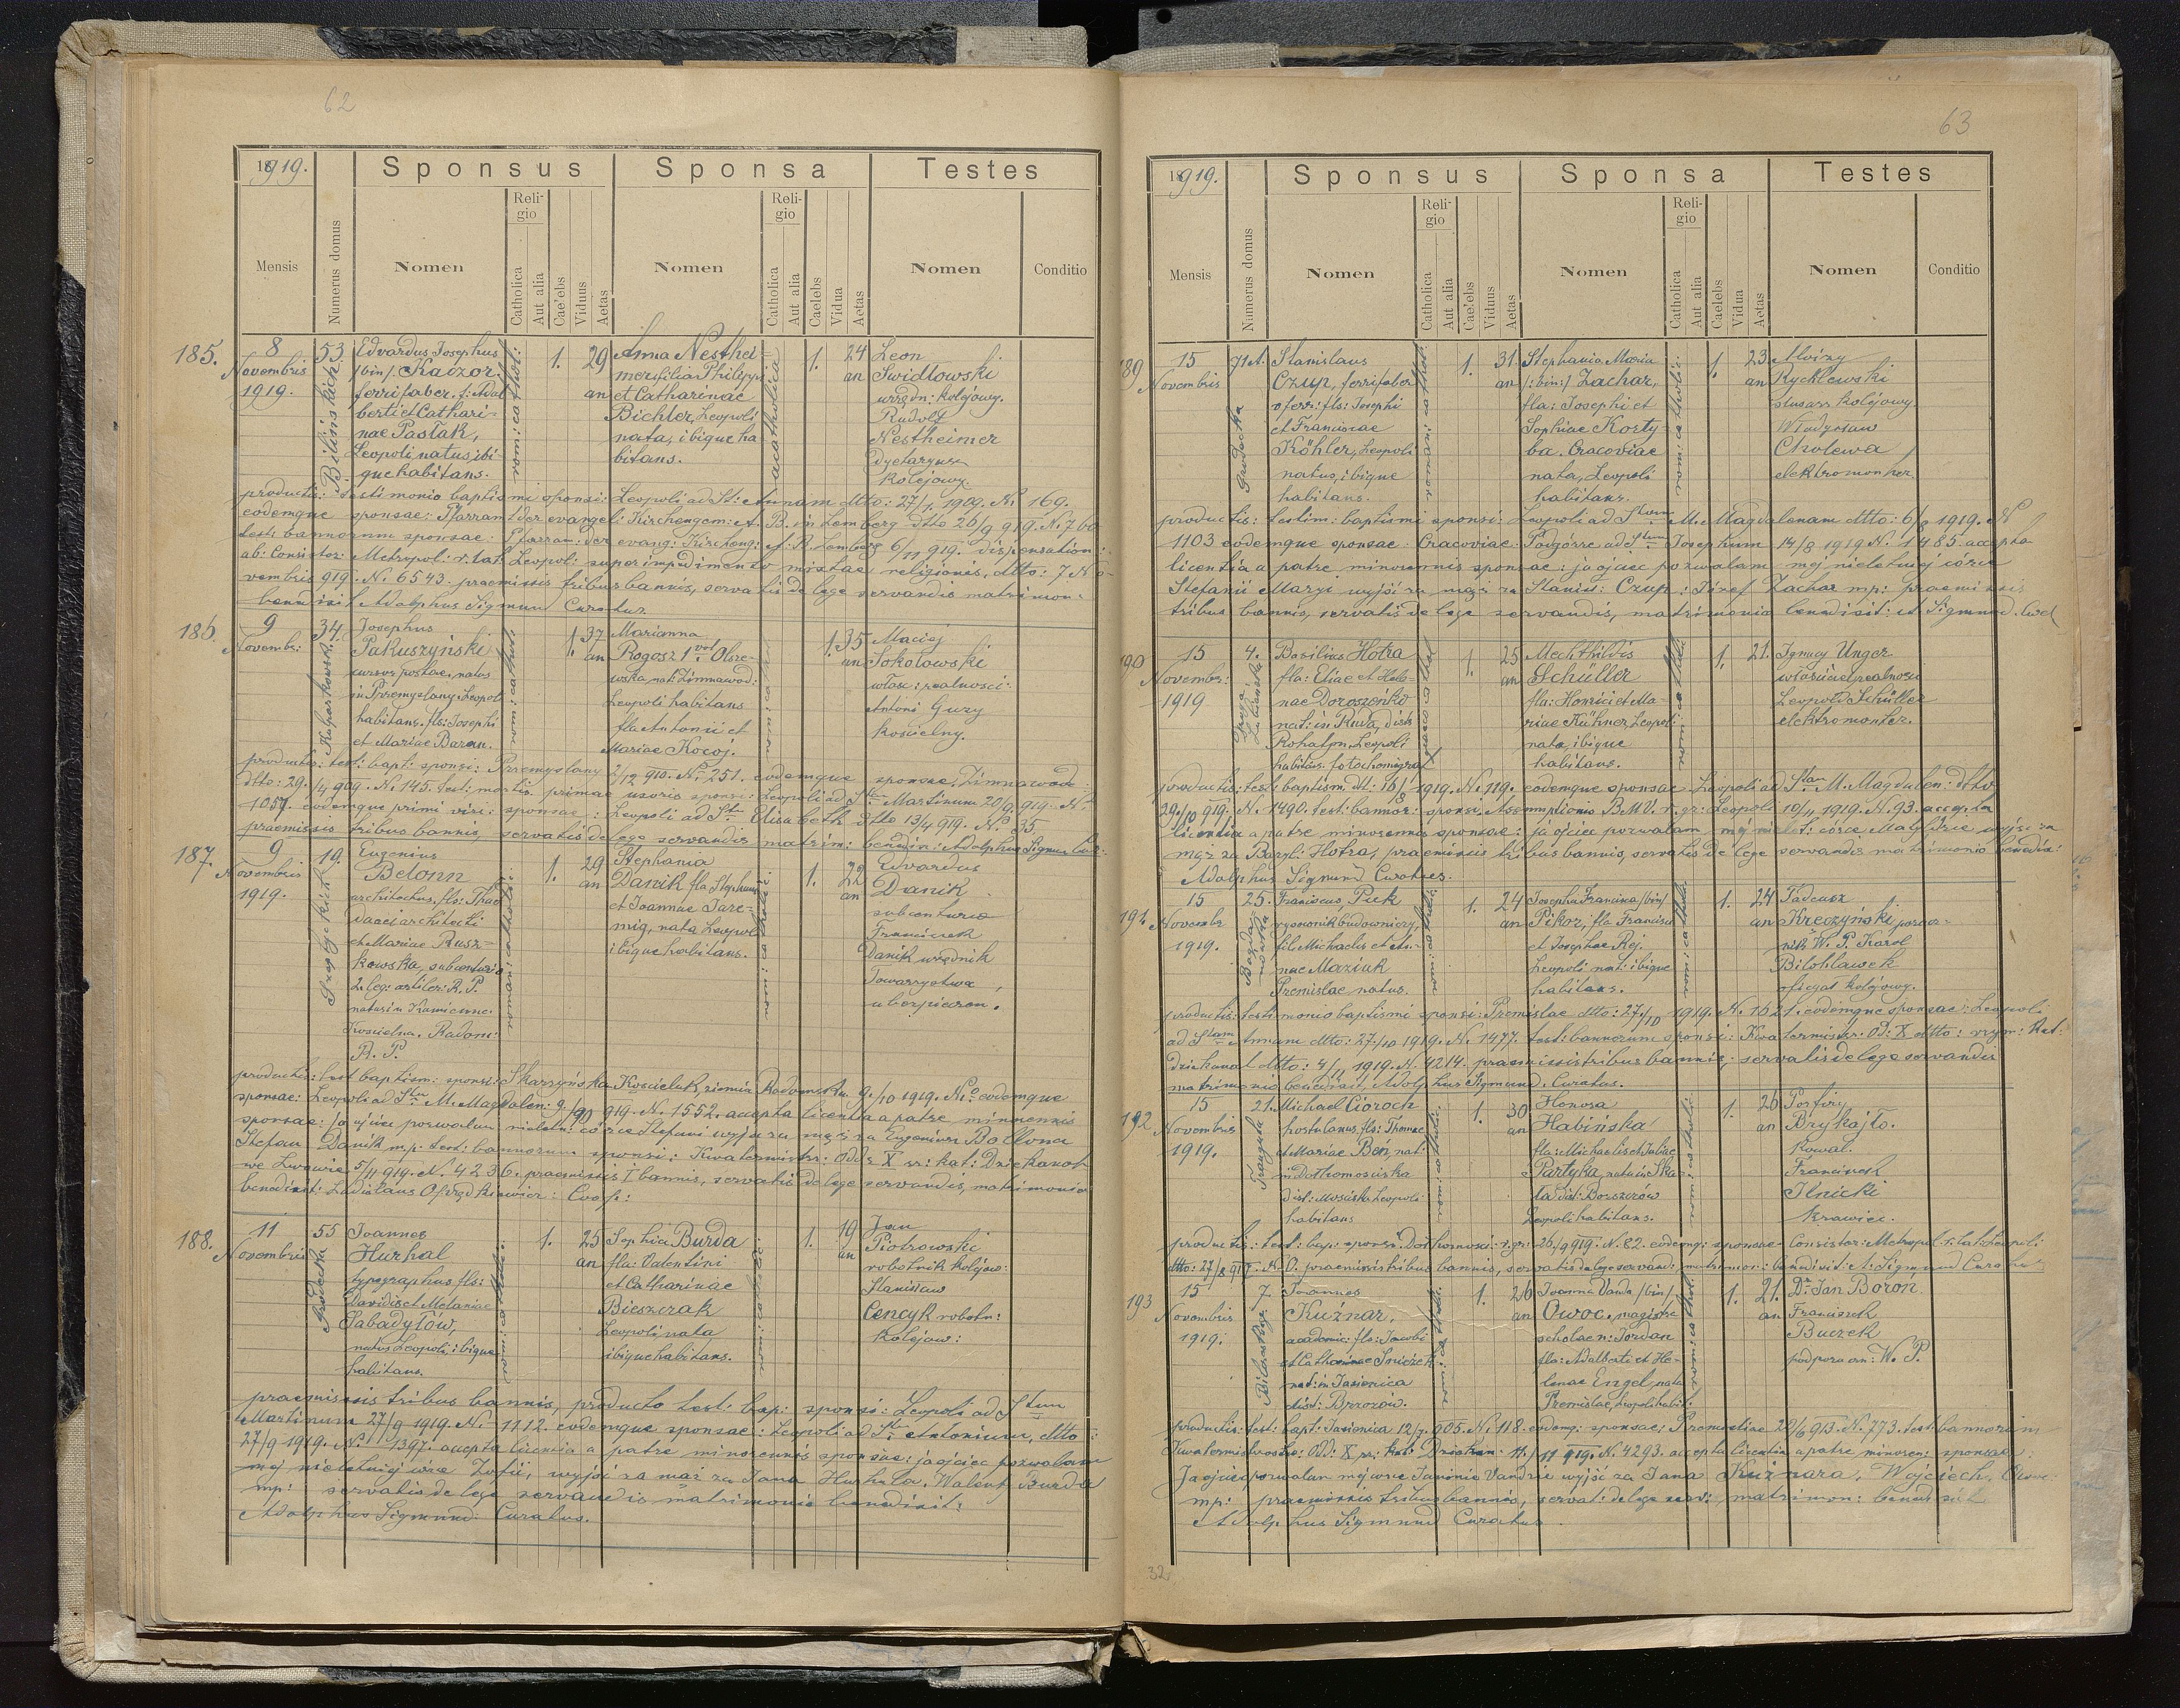 62
1919.
Sponsus
Sponsa
Testes
Mensis
Numerus domus
Nomen
Religio
Catholica
Aut alia
Cae'ebs
Viduus
Aetas
Nomen
Religio
Catholica
Aut alia
Caelebs
Vidua
Aetas
Nomen
Conditio
185.
8
Novembris
1919.
53.
Edvardus Josephus
/bin/. Kaczor
ferrifaber, f: Adal
berti et Cathari-
nae Pastak,
Leopoli natus ibi-
que habitans.
rom: cathol:
1.
29
an
Anna Nesthei-
mer filia Philippi
et Catharinae
Bichler, Leopoli
nata, ibique ha
bitans.
acatholica
1.
24
an
Leon
Swidlowski
urzędn: kolejowy.
Rudolf
Nestheimer
dyetaryusz
kolejowy.
productis: testimonio baptismi sponsi: Leopoli ad St: Annam dtto: 27/1 1909. N. 169.
eodemque sponsae: Pfarramt der evangel: Kirchengem: A. B. in Lemberg dtto 26/9 919. N. 760
test: bannorum sponsae: Pfarram: der evang: Kircheng: A. B. Lemberg 6/11 919. dispensation:
ab: Consistor: Metropol: r. lat. Leopol: super impedimento mixtae religionis, dtto: 7 No-
vembris 919. N. 6543. praemissis tribus bannis, servatis de lege servandis matrimon:
benedixit Adolphus Sigmund Curatus.
186.
9
Novembr:
34.
Kulparkowska
Josephus
Pakuszyński
cursor postae, natus
in Przemyslany Leopoli
habitans. fls: Josephi
et Mariae Baran.
rom: cathol:
1.
37
an
Marianna
Rogosz 1 vot Olsze-
wska, nat: Zimnawod:
Leopoli habitans
fla Antonii et
Mariae Kocój.
1.
35
an
Maciej
Sokołowski
włośc: realności:
Antoni Guzy
kościelny.
productis: test: bapt: sponsi: Przemyslany 2/12 910. N. 251. eodemque sponsae, Zimnawoda
dtto: 29./4 909. N. 145. test: mortis primae uxoris sponsi: Leopoli ad Stum Martinum 20/9 919. N.
1057. eodemque primi viri: sponsae: Leopoli ad St. Elisabeth dtto 13/4 919. N. 35
praemissis tribus bannis, servatis de lege servandis matrim: benedix: Adolphus Sigmu: Cur:
187.
9
Novembris
1919.
19.
Eugenius
Belonn
architectus, fls: Thad
daei architecti
et Mariae Rusz-
kowska, subcenturio
2. leg: artiler: R. P.
natus in Kamienne.
Koscielna. Radom:
R. P.
roman: cathol:
1.
29
an
Stephania
Danik fla Stephani
et Joannae Jare-
mig, nata Leopol
ibique habitans.
rom: catholica:
1.
22
an
Edvardus
Danik
subcenturio
Franciszek
Danik urzędnik
Towarzystwa
ubezpieczen.
sponsae: Leopoli ad Stu M. Magdalen: 9/10 919. N. 1552. accepta licentia a patre minorennis
sponsae: ja ojciec pozwalam nieletni: córce Stefani wyjść za mąż za Eugeniusza Bellona
Stefan Danik mp: test: bannorum sponsi: Kwatermistrz: Oddz X rz: kat: Dziekanat
we Lwowie 5/11 919. N. 4236. praemissis 1 bannis, servatis de lege servandis, matrimonio
188.
11
Novembris
55
Grodecka
Joannes
Hurhal
typographus, fls:
Davidis et Melaniae
Sabadyłów,
natus Leopoli ibique
habitans.
1.
25
an
Sophia Burda
fla: Valentini
et Catharinae
Bieszczak
Leopoli nata
ibique habitans.
1.
19
an
Jan
Piotrowski
robotnik kolejow:
Stanisław
Cencyk robotn:
kolejow:
praemissis tribus bannis, producto test: bap: sponsi: Leopoli ad Stum
Martinum 27/9 1919. N. 1112. eodemque sponsae: Leopoli ad St. Antonium, dtto:
27/9 1919. N. 1397. accepta licentia a patre minorennis sponsae: ja ojciec pozwalam
mej nieletniej córce Zofii, wyjść za mąż za Jana Hurhala. Walenty Burda
mp: servatis de lege servandis matrimonio benedixit:
Adolphus Sigmund: Curatus.
63
1919.
Sponsus
Sponsa
Testes
Mensis
Numerus domus
Nomen
Religio
Catholica
Aut alia
Cae'ebs
Viduus
Aetas
Nomen
Religio
Catholica
Aut alia
Caelebs
Vidua
Aetas
Nomen
Conditio
189
15
Novembris
71A.
Grodecka
Stanislaus
Czup, ferrifaber
v ferr: fls: Josephi
et Franciscae
Köhler, Leopoli
natus, ibique
habitans.
roman: cathol:
1.
31.
an
Stephania Maria
/:bin:/ Zachar,
fla: Josephi et
Sophiae Korty-
ba. Cracoviae
nata, Leopoli
habitans.
rom: catholic:
1.
23
an
Alojzy
Rychlewski
slusarz kolejowy.
Władysław
Cholewa
elektromonter.
productis: testim: baptismi sponsi: Leopoli ad Stam M. Magdalenam dtto: 6/8 1919. N
1103 eodemque sponsae: Cracoviae: Podgórze ad Stum Josephum 14/8 1919 N. 1485. accepta
licentia a patre minorennis sponsae: ja ojciec pozwalam mej nieletniej córce
Stefanii Maryi wyjść za mąż za Stanisł: Czup: Józef Zachar mp: praemissis
tribus bannis, servatis de lege servandis, matrimonio benedixit: A. Sigmund. Cur
190
15
November:
1919
4.
Basilius Hotra
fls: Eliae et Hele-
nae Doroszenko
nat: in Ruda, distr
Rohatyn. Leopoli
habitans. fotochemigraf
graeco cathol
1.
25
an
Mechthildis
Schüller
fla: Henrici et Ma
riae Kühner Leopoli
nata, ibique
habitans.
1.
21.
Ignacy Unger
właściciel realności
Leopold Schüller
elektromonter.
productis: test: baptism. dt: 16/6 1919. N. 119. eodemque sponsae Leopoli ad Stam M. Magdalen: dtto
29./10 919. N. 1490. test: bannor: sponsi, Assumptionis B.M.V. r. gr: Leopoli 10/11 1919. N. 93. accepta
licentia a patre minorennis sponsae: ja ojciec pozwalam mej nielet: córce Matyldzie wyjść za
mąż za Bazyl: Hotra, praemissis tribus bannis, servatis de lege servandis matrimonio benedix:
Adolphus Sigmund Curatus.
191.
15
Novembr
1919.
25.
Bogdanówka
Franciscus, Puk
rysownik budowniczy,
fil: Michaelis et An-
nae Maziuk
Premislae natus.
1.
24
an
Josepha Francisca /bin/
Pikor, fla Francisci
et Josephae Rej.
Leopoli nat: ibique
habitans.
1.
24
an
Tadeusz
Krzeczyński, porucz-
nik W. P. Karol
Bilohlawek
oficyał kolejowy.
productis: testimonio baptismi sponsi: Premislae dtto: 27./10 1919. N. 1621. eodemque sponsae: Leopoli
ad Stam Annam dtto: 27./10 1919. N. 1477. test: bannorum sponsi: Kwatermistr: Od: X dtto: rzym: kat:
Dziekanat dtto: 4/11 1919. N. 4214. praemissis tribus bannis, servatis de lege servandis
matrimonio benedixit, Adolphus Sigmund. Curatus.
192
15
Novembris
1919.
21.
Michael Cioroch
postulanus. fls: Thomae
et Mariae Beń, nat:
in Dothomosciska
dist: Mosciska Leopoli
habitans
1.
30
an
Honora
Habińska
fla: Michaelis et Juliae
Partyka, nata in Ska-
ła dist: Borszczów
Leopoli habitans.
1.
26
an
Porfiry
Brykajło.
kowal.
Franciszek
Ilnicki
krawiec.
dtto: 27/8 917. N. O. praemissis tribus bannis, servatis de lege servand: matrimon: benedixit: A. Sigmund Curatus
193
15
Novembris
1919.
7
Bilohorska
Joannes
Kuźnar,
academic: fls: Jacobi
et Catharinae Śnieżek
nat: in Jasienica
dist: Brzozów.
1.
26
an
Joanna Vanda /bin/
Owoc, magistra
scholae n: Jordan
fla: Adalberti et He-
lenae Engel, nata
Premislae, Leopoli habit.
rom: cathol:
1.
21.
an
Dr Jan Boroń
Franciszek
Buczek
podporucz: W. P.
productis: test: bapt: Jasienica 12/7 905. N. 118. eodemq: sponsae: Premisliae 20/6 913. N. 773. test: bannorum
Kwatermistrzostw: Od: X rz: kat: Dziekan: 11./11 919. N. 4293. accepta licentia a patre minoren: sponsae
Ja ojciec pozwalam mej córce Janinie Vandzie wyjść za Jana Kuźnara, Wojciech Owoc.
mp: praemissis tribus bannis, servat: de lege serv: matrimon: benedixit
Adolphus Sigmund Curatus.
32